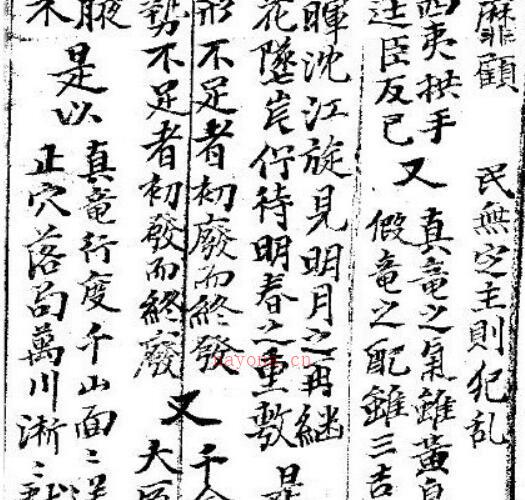 靡顧　民無定主則犯乱
西夷拱手　真竜之氣雖黄
廷臣反己　又　假竜之配雖三吉
暉沈江旋見明月之再継
花墜岸佇待明春之重敷
形不足者初廢而終發　又　千
勢不足者初發而終廢　大
是以　真竜行度千山面〻
服　正穴落句萬川淅〻
nayong.cn